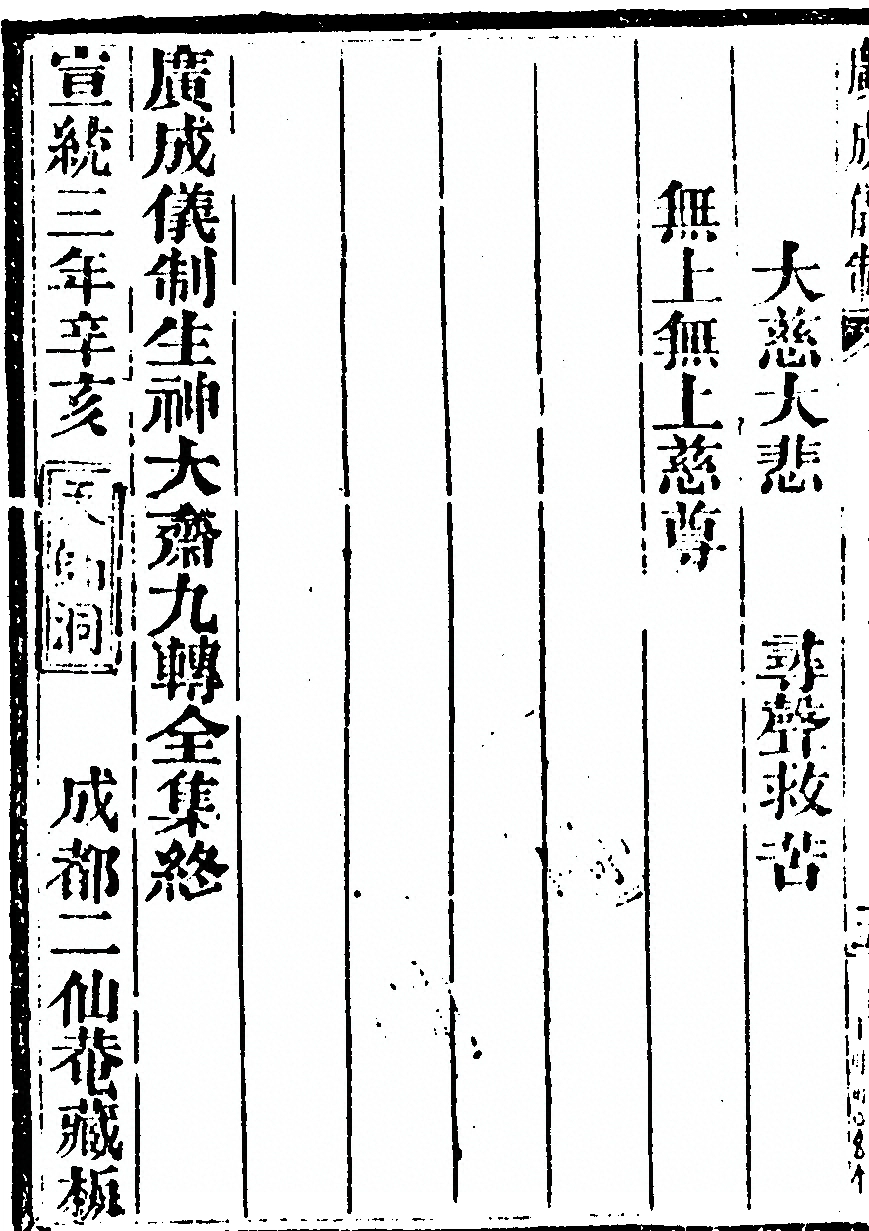 廣成儀制
大慈大悲 尋聲救苦
無上無上慈尊
廣成儀制生神大齋九轉全集終
宣統三年辛亥 天師洞 成都二仙菴藏板